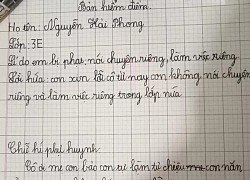 Bản kiểm điểm.
Họ tên: Nguyễn Hải Phong
Lớp: 3E
Lí do em bị phạt, nói chuyện riêng, làm việc riêng.
Lời hứa: con xin lỗi cô từ nay con không nói chuyện
riêng và làm việc riêng trong lớp nữa.
Chữ kí phụ huynh
Cô ơi mẹ con bảo con tự làm từ chiều